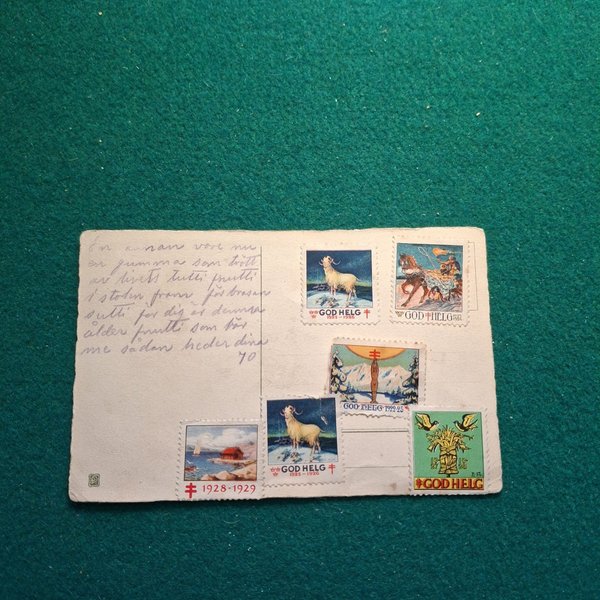 En annan vore nu
en gumma som trött
av livets tutti frutti
i stolen framför brasan
sutti för dig är denna
ålder frutti som bär
me sådan heder dina
70
GOD HELG
1925-1926
GOD HELG
GOD HELG 1922-23
GOD HELG
1925-1926
1928-1929
GOD HELG